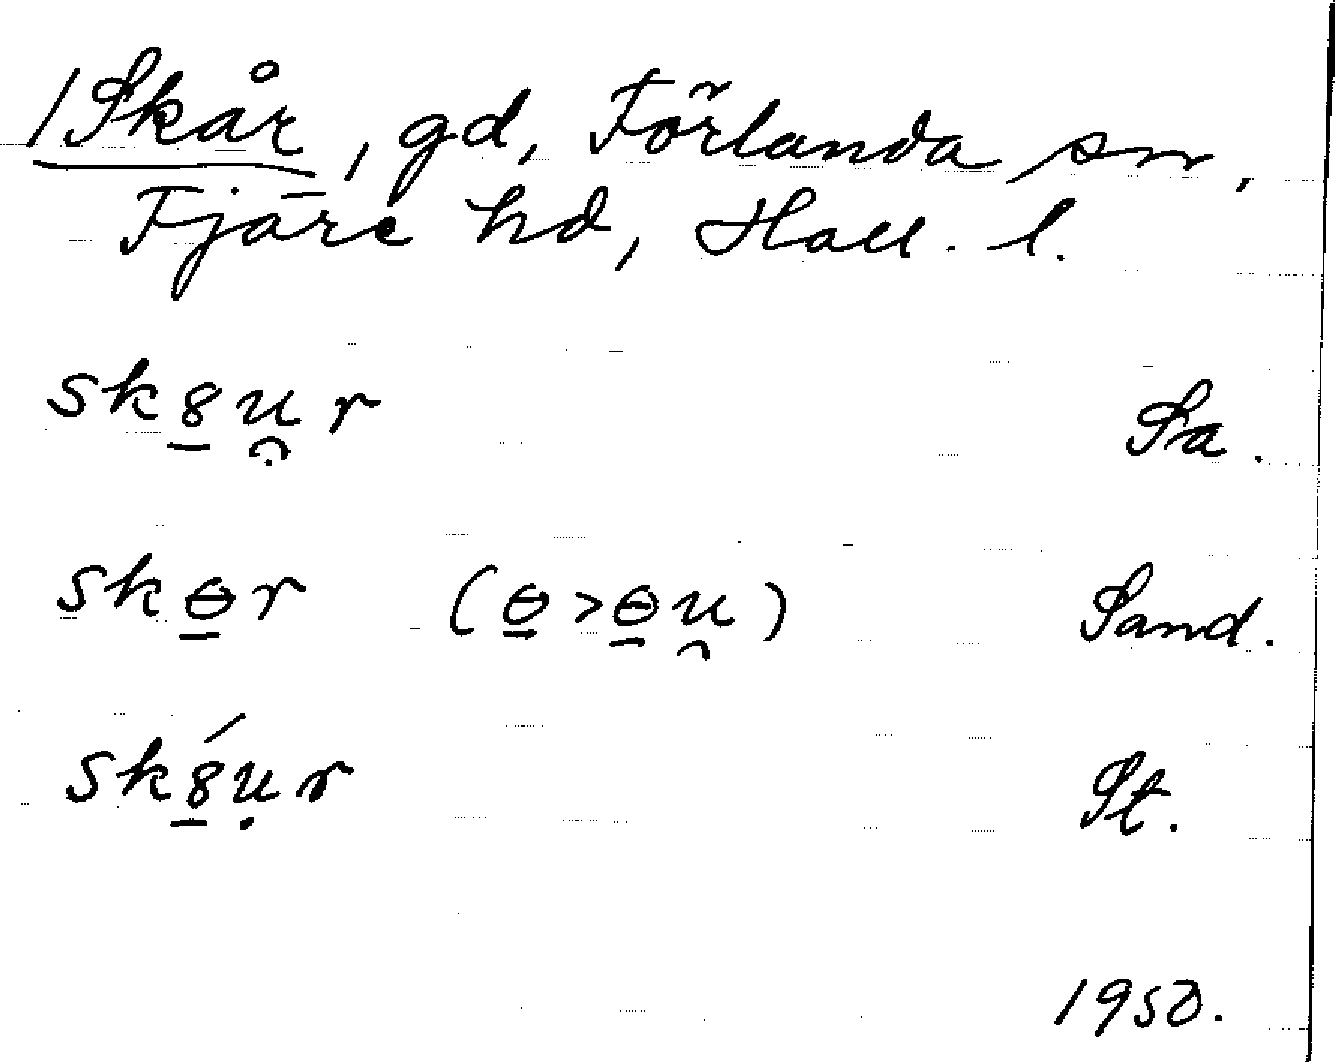 /Skår, gd, Förlanda sn,
Fjäre hd, Hall. l.
sk8̱u̯̣r Sa.
skɵ̱r (ɵ̱>ɵ̱u̯) Sand.
sk8̱́ụr St.
1950.